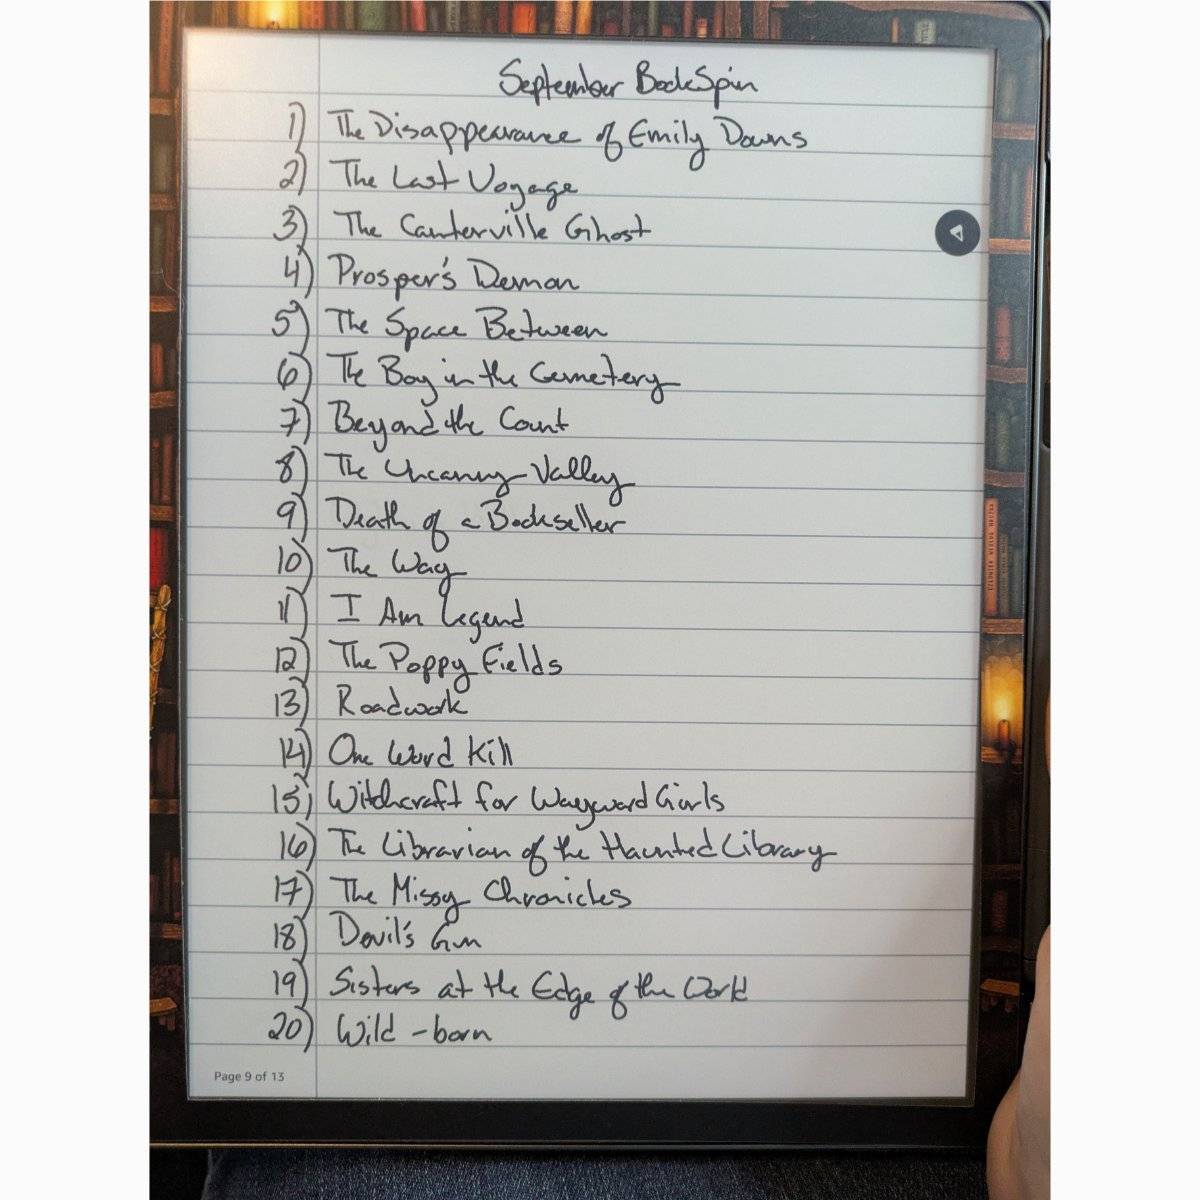 September BookSpin
1) The Disappearance of Emily Downs
2) The Last Voyage
3) The Canterville Ghost
4) Prosper's Demon
5) The Space Between
6) The Boy in the Cemetery
7) Beyond the Count
8) The Uncanny Valley
9) Death of a Bookseller
10) The Way
11) I Am Legend
12) The Poppy Fields
13) Roadwork
14) One Word Kill
15) Witchcraft for Wayward Girls
16) The Librarian of the Haunted Library
17) The Missy Chronicles
18) Devil's Gun
19) Sisters at the Edge of the World
20) Wild-born
Page 9 of 13